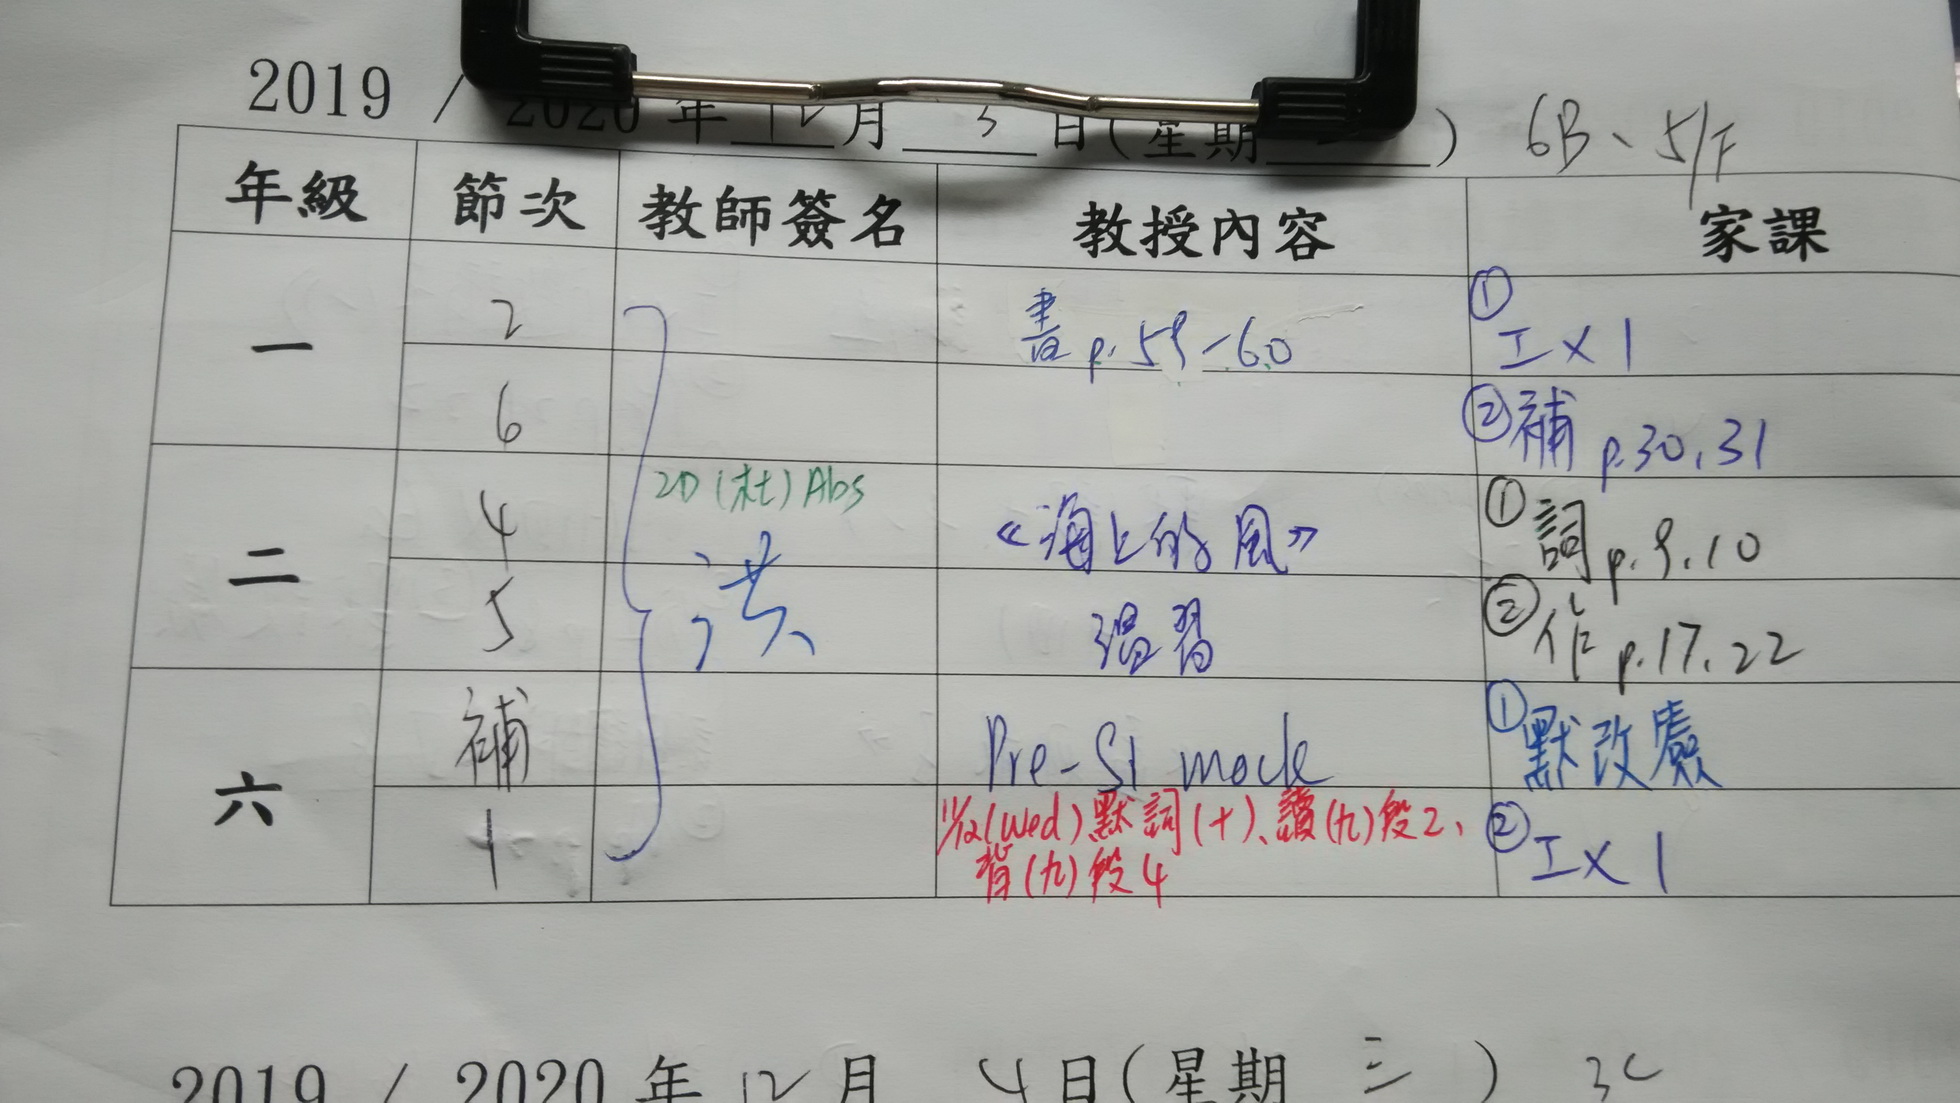 2019 / 2020 年 12 月 3 日(星期 二 ) 6B、5/F
年級 節次 教師簽名 教授內容 家課
一 2 書 p. 59-60 ① 工 x 1
6 ② 補 p.30, 31
二 4 2D (杜) Abs 《海上的風》 ① 詞 p. 9, 10
5 洪 溫習 ② 作 p.17, 22
六 補 Pre-S1 mock ① 默改
1 11/12 (Wed) 默詞(十)、讀(九)段2、 ② 工 x 1
背(九)段4
2019 / 2020 年 12 月 4 日(星期 三 ) 3C